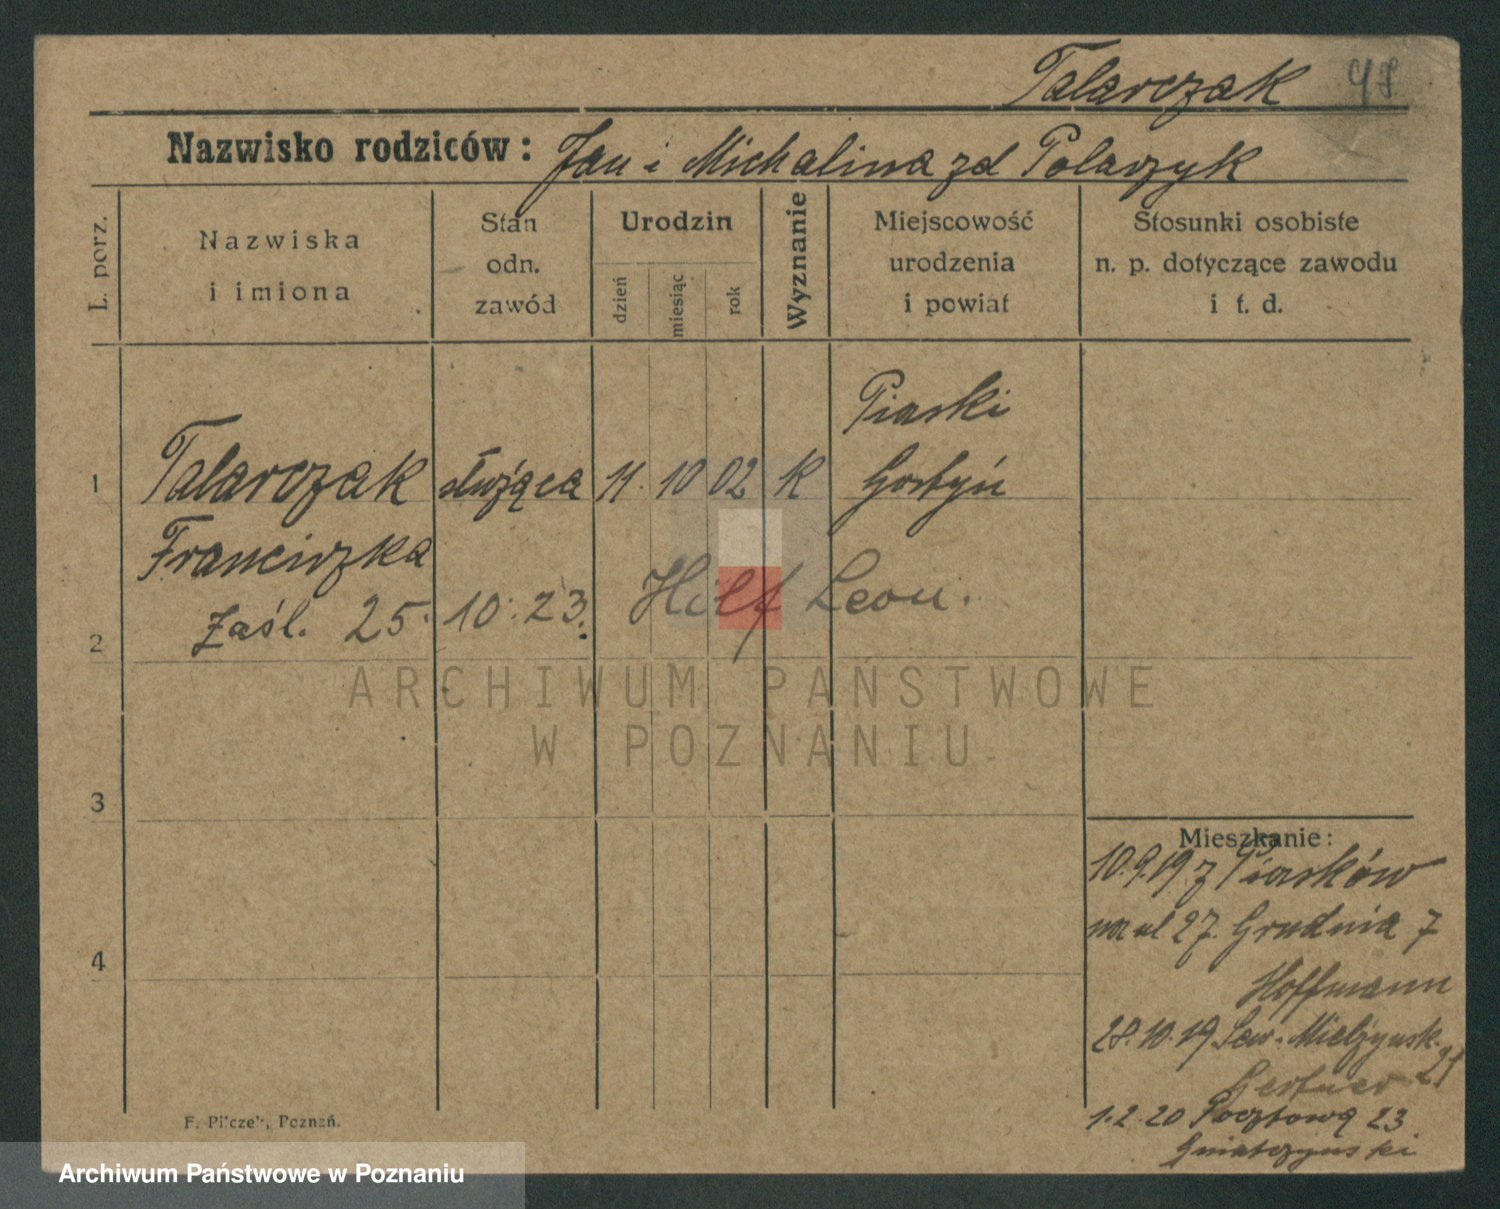 Talarczak 98
Nazwisko rodziców: Jan i Michalina zd Polarzyk
L. porz.
Nazwiska i imiona
Stan odn. zawód
Urodzin
dzień
miesiąc
rok
Wyznanie
Miejscowość urodzenia i powiat
Stosunki osobiste n. p. dotyczące zawodu i t. d.
Piaski
1 Talarczak służąca 11. 10 02 K Gostyń
Franciszka
Zaśl. 25. 10. 23. Hilf Leon.
2
3
4
Mieszkanie:
10.9.19 z Piasków
na ul 27. Grudnia 7
Hoffmann
28.10.19 Sew. Mielżyńsk. 21
Gertner
1.2.20 Pocztowa 23
Gniatczyński
F. Pilczek, Poznań.
ARCHIWUM PAŃSTWOWE
W POZNANIU
Archiwum Państwowe w Poznaniu